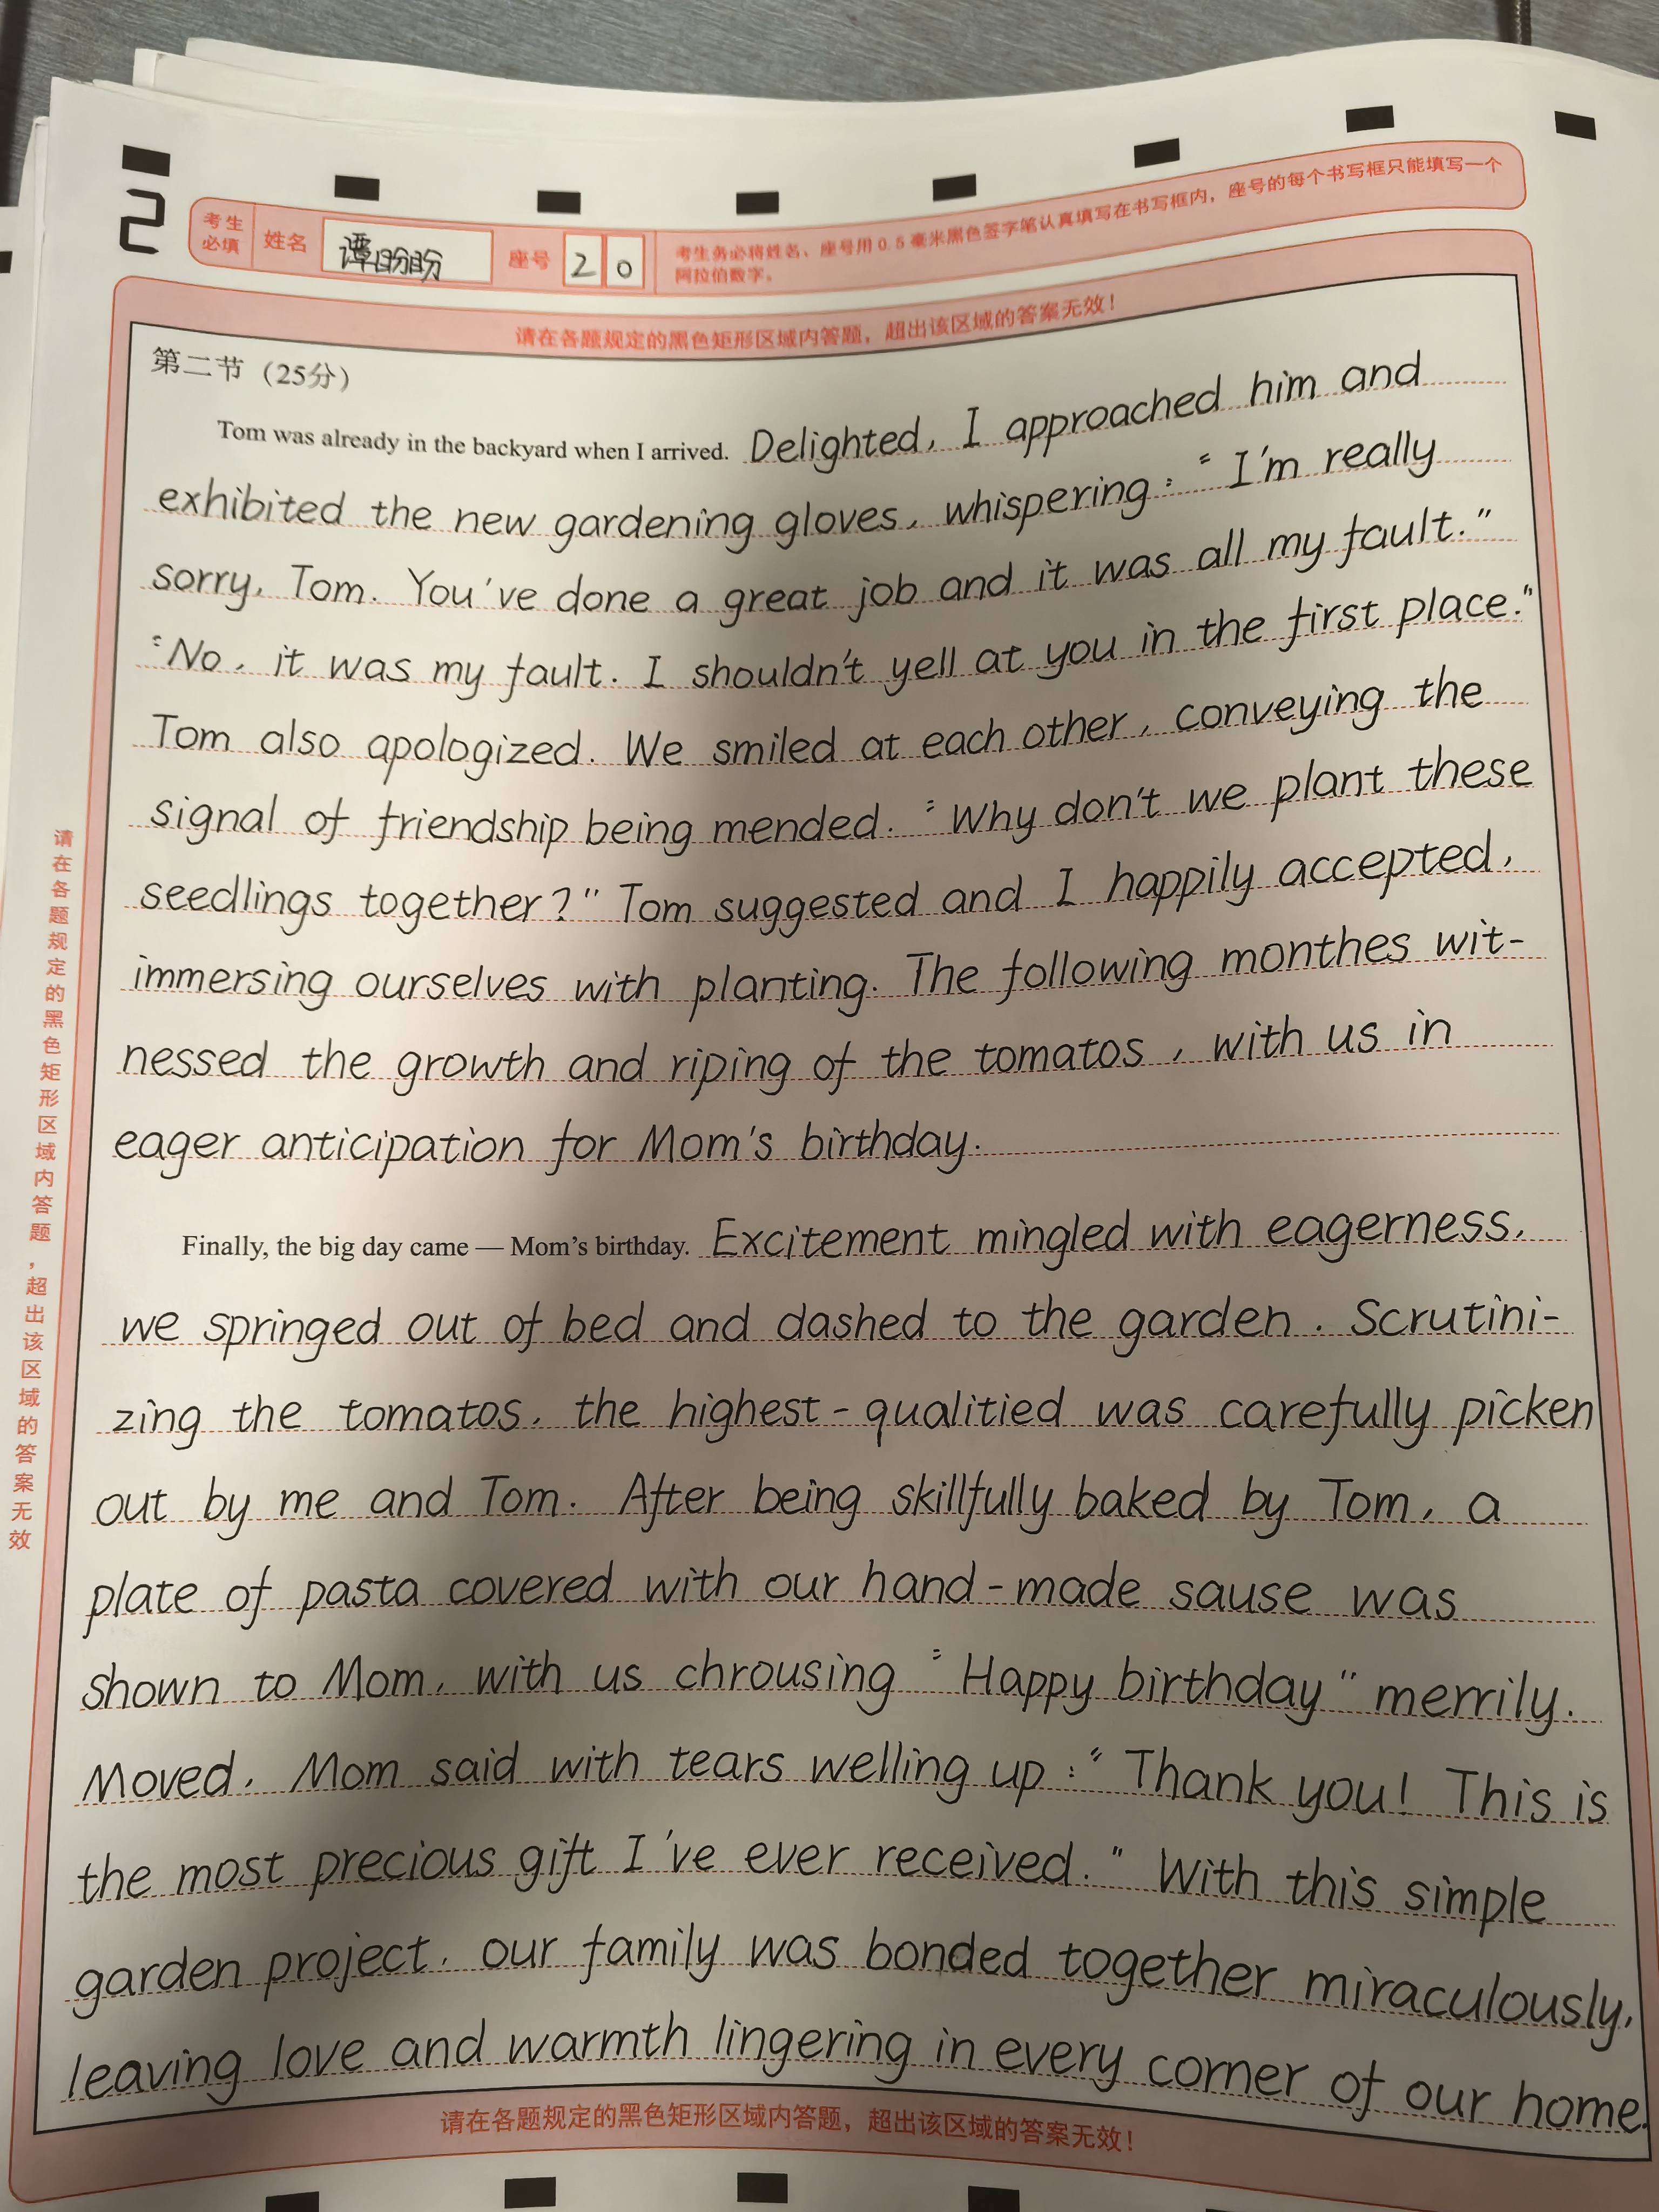 2
考生必填 姓名 谭盼盼 座号 2 0 考生务必将姓名、座号用0.5毫米黑色签字笔认真填写在书写框内，座号的每个书写框只能填写一个
阿拉伯数字。
请在各题规定的黑色矩形区域内答题，超出该区域的答案无效！
第二节（25分）
Tom was already in the backyard when I arrived. Delighted, I approached him and
exhibited the new gardening gloves, whispering: "I'm really
sorry, Tom. You've done a great job and it was all my fault."
"No, it was my fault. I shouldn't yell at you in the first place."
Tom also apologized. We smiled at each other, conveying the
signal of friendship being mended. "Why don't we plant these
seedlings together?" Tom suggested and I happily accepted,
immersing ourselves with planting. The following monthes wit-
nessed the growth and riping of the tomatos, with us in
eager anticipation for Mom's birthday.
Finally, the big day came — Mom's birthday. Excitement mingled with eagerness,
we springed out of bed and dashed to the garden. Scrutini-
zing the tomatos, the highest-qualitied was carefully picken
out by me and Tom. After being skillfully baked by Tom, a
plate of pasta covered with our hand-made sause was
shown to Mom, with us chrousing "Happy birthday" merrily.
Moved, Mom said with tears welling up: "Thank you! This is
the most precious gift I've ever received." With this simple
garden project, our family was bonded together miraculously,
leaving love and warmth lingering in every corner of our home.
请在各题规定的黑色矩形区域内答题，超出该区域的答案无效！
请在各题规定的黑色矩形区域内答题，超出该区域的答案无效